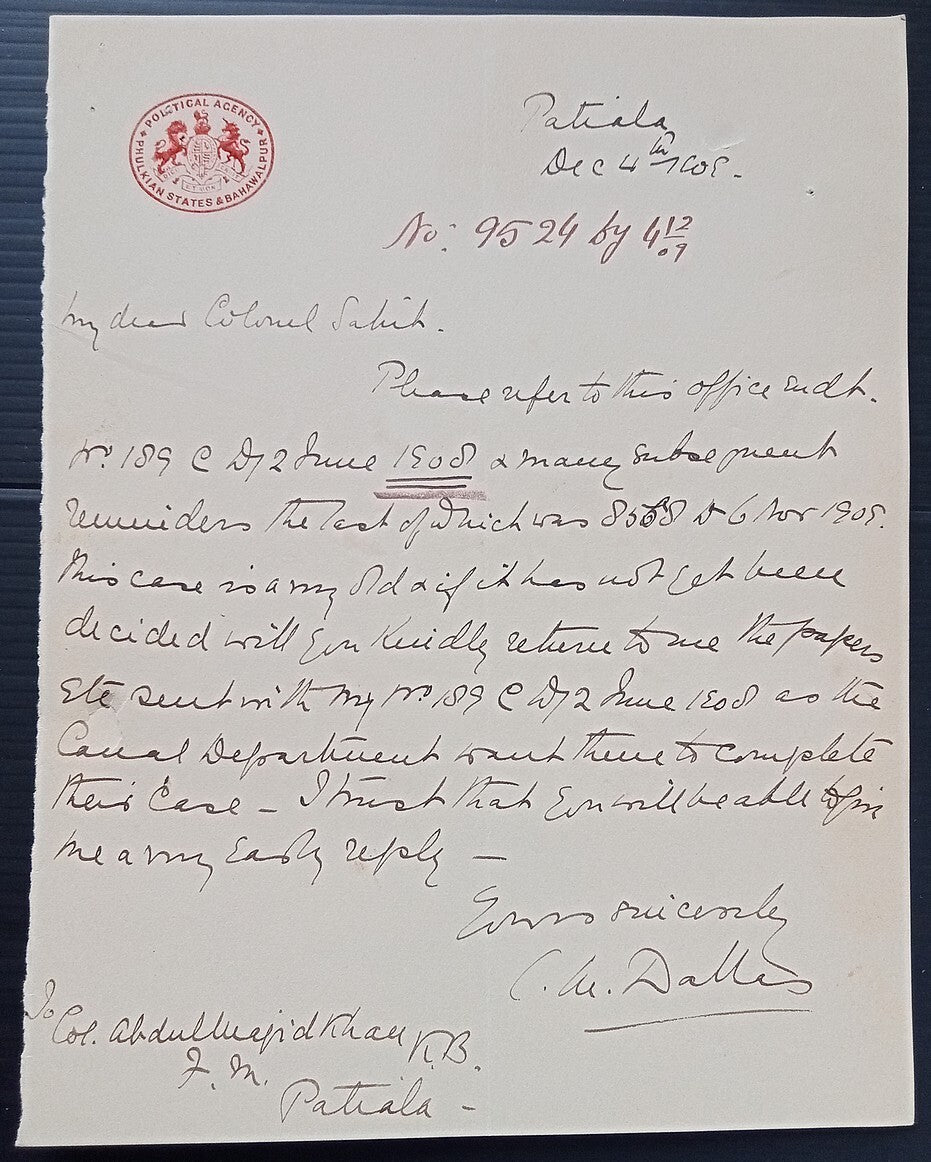 POLITICAL AGENCY
PHULKIAN STATES & BAHAWALPUR
Patiala
Dec 4th 1909.
No: 9524 by 4 12/09
My dear Colonel Sahib.
Please refer to this office endt.
No. 189 C D/2 June 1908 & many subsequent
reminders the last of which was 8568 D 6 Nov 1909.
This case is a very old & if it has not yet been
decided will you kindly return to me the papers
etc sent with my No. 189 C D/2 June 1908 as the
Canal Department want them to complete
their case – I trust that you will be able to give
me a very early reply –
Yours sincerely
C. M. Dallas
To
Col. Abdul Majid Khan K.B.
F. M.
Patiala –